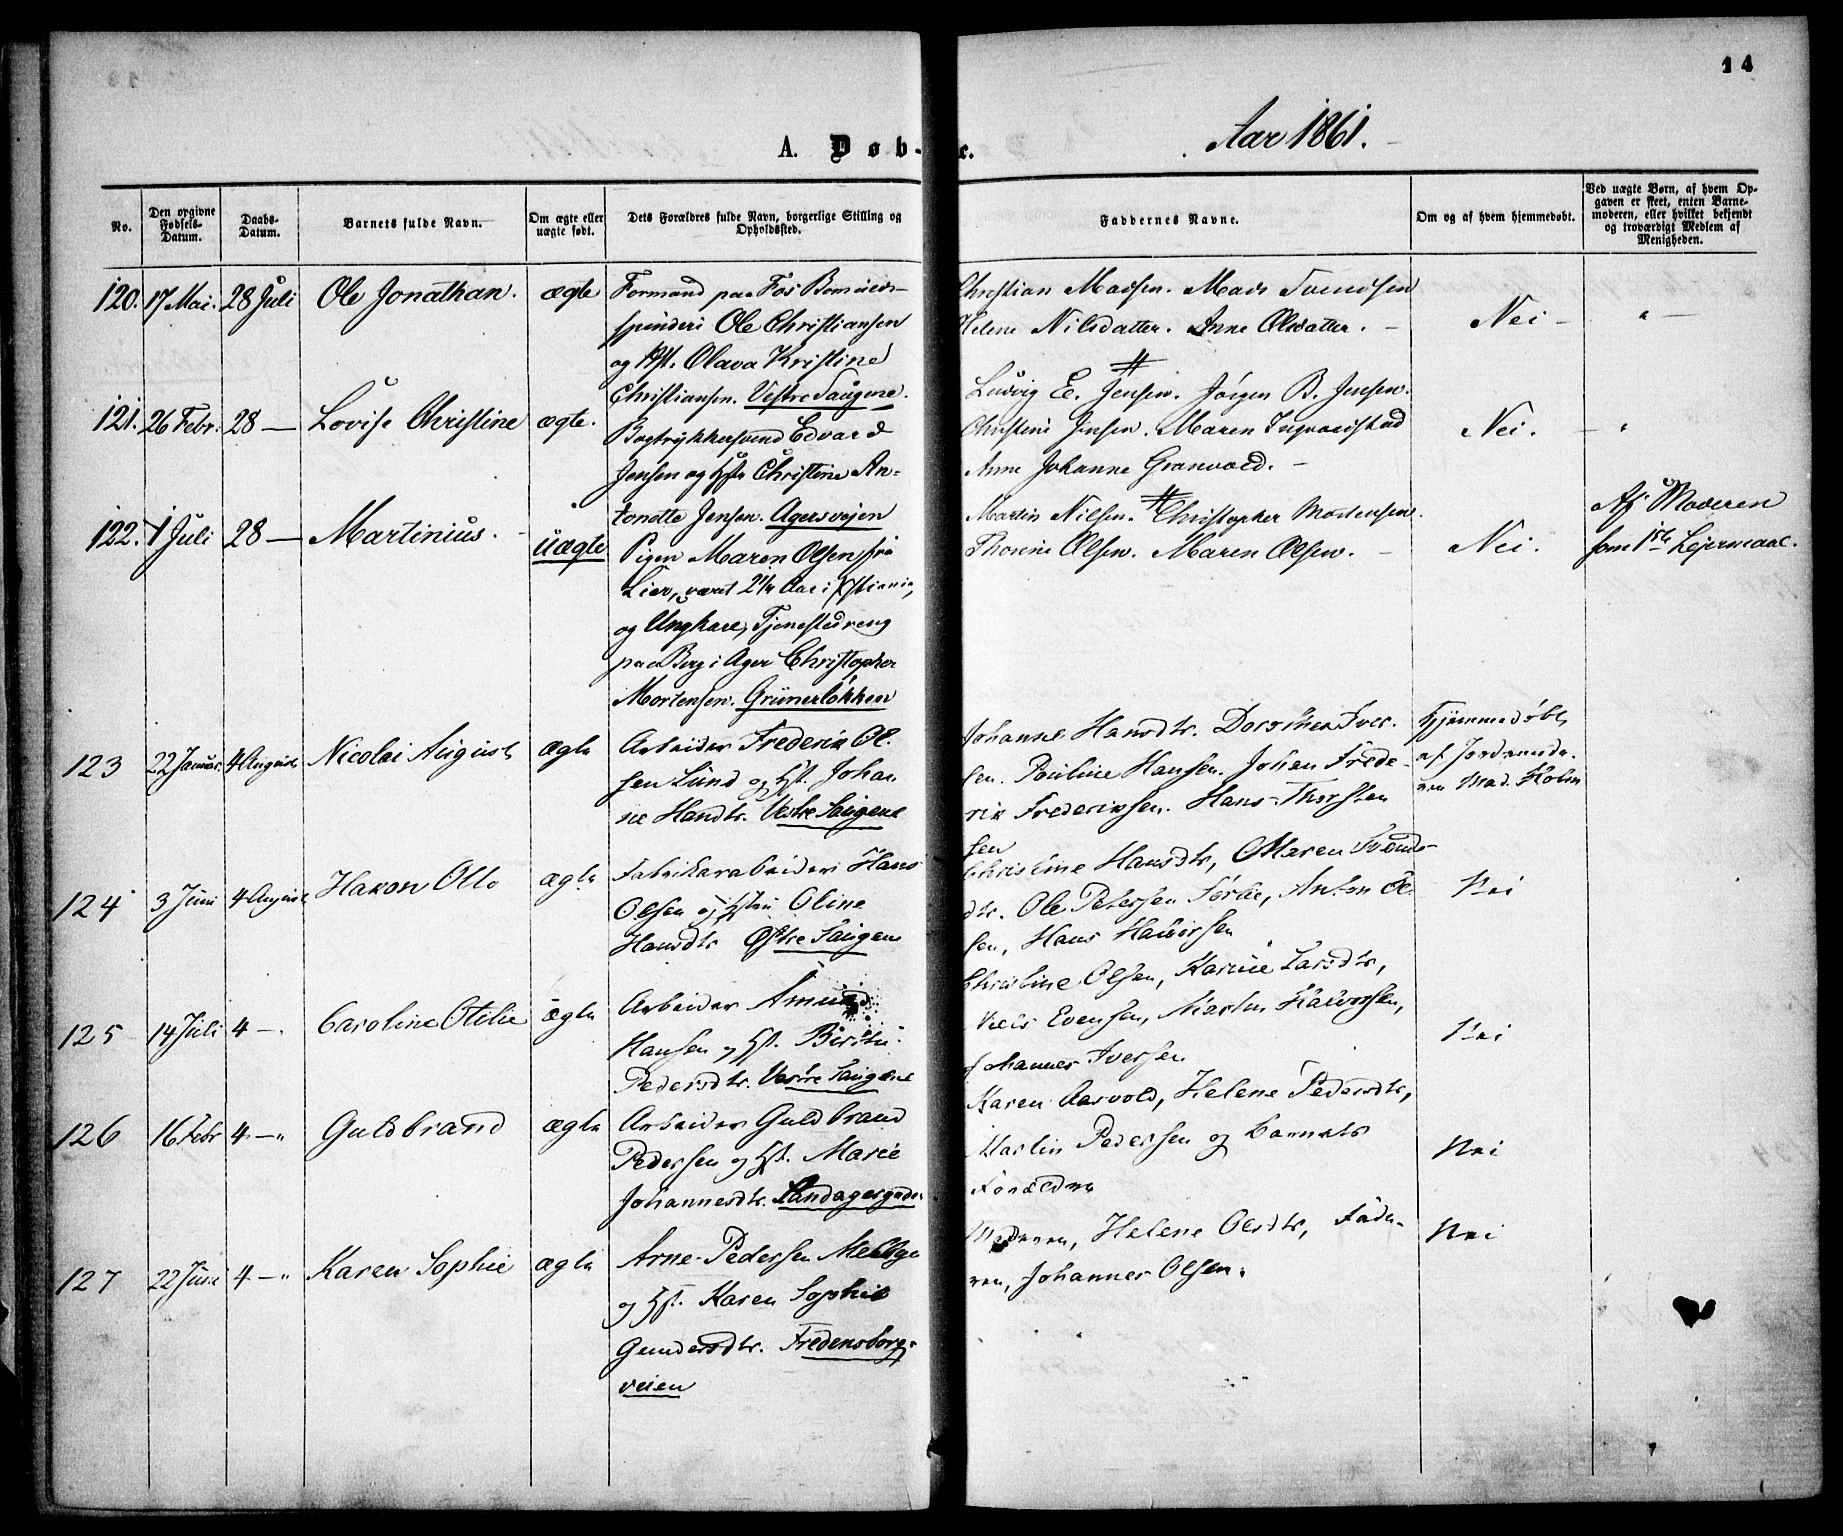 14
Aar 1861.
A. Døb-
te.
No.
Den opgivne Fødsels-Datum.
Daabs-Datum.
Barnets fulde Navn.
Om ægte eller uægte født.
Dets Forældres fulde Navn, borgerlige Stilling og Opholdssted.
Faddernes Navne.
Om og af hvem hjemmedøbt.
Ved uægte Børn, af hvem Op-
gaven er skeet, enten Barne-
moderen, eller hvilket bekjendt
og troværdigt Medlem af
Menigheden.
120. 17 Mai. 28 Juli Ole Jonathan. ægte
Formand paa Fos Bomulds-
spinderi Ole Christiansen
og Hst. Olava Kristine
Christiansen. Vestre Saugene.
Christian Madsen. Mads Svendsen
Helene Nilsdatter. Anne Olsdatter. -
Nei - " -
121. 26 Febr. 28 - Lovise Christine ægte.
Bogtrykkersvend Edvard
Jensen og Hst. Christine An-
tonette Jensen. Agersveien
Ludvig E. Jensen. Jørgen B. Jensen.
Christine Jensen. Maren Ingvardstad
Anne Johanne Granvold. -
Nei. - "
122. 1 Juli 28 - Martinius. - uægte
Pigen Maren Olsen fra
Lier, været 2 1/2 Aar i Xstiania,
og Ungkarl, Tjenestedreng
paa Berg i Ager Christopher
Mortensen. Grünerløkken
Martin Nilsen. Christopher Mortensen.
Thorine Olsen. Maren Olsen. -
Nei.
Af Moderen
som 1ste Leiermaal.
123 22 Januar. 4 August Nicolai August ægte
Arbeider Frederik Ol-
sen Lund og Hst. Johan
ne Hansdtr. Vestre Saugene
Johanne Hansdtr. Dorothea Iver-
sen. Pauline Hansen. Johan Frede-
rik Frederiksen. Hans Thorsten
sen
Hjemmedøbt
af Jordemode-
ren Mad. Holm
124 3 Juni 4 August Hakon Otto ægte
Fabrikarabeider Hans
Olsen og Hstru Oline
Hansdtr Østre Saugene
Christine Hansdtr, Maren Svends-
dtr. Ole Petersen Sørlie, Anton Ol-
sen, Hans Halvorsen
Nei
125 14 Juli 4 - " Caroline Otilie ægte
Arbeider Amund
Hansen og Hst. Berthe
Pedersdtr. Vestre Saugene
Christine Olsen, Karine Larsdtr,
Niels Evensen, Martin Halvorsen,
Johannes Iversen
Nei
126 16 Febr 4 - " Guldbrand ægte
Arbeider Guldbrand
Pedersen og Hst. Marie
Johannesdtr. Sandagergaden
Karen Aasvold, Helene Pedersdtr,
Martin Pedersen og Barnets
Forældre
Nei
127 22 Juni 4 - " Karen Sophie ægte
Arne Pedersen
og Hst. Karen Sophie
Gundersdtr. Fredensborg-
veien
Moderen, Helene Olsdtr, Fade-
ren, Johannes Olsen.
Nei